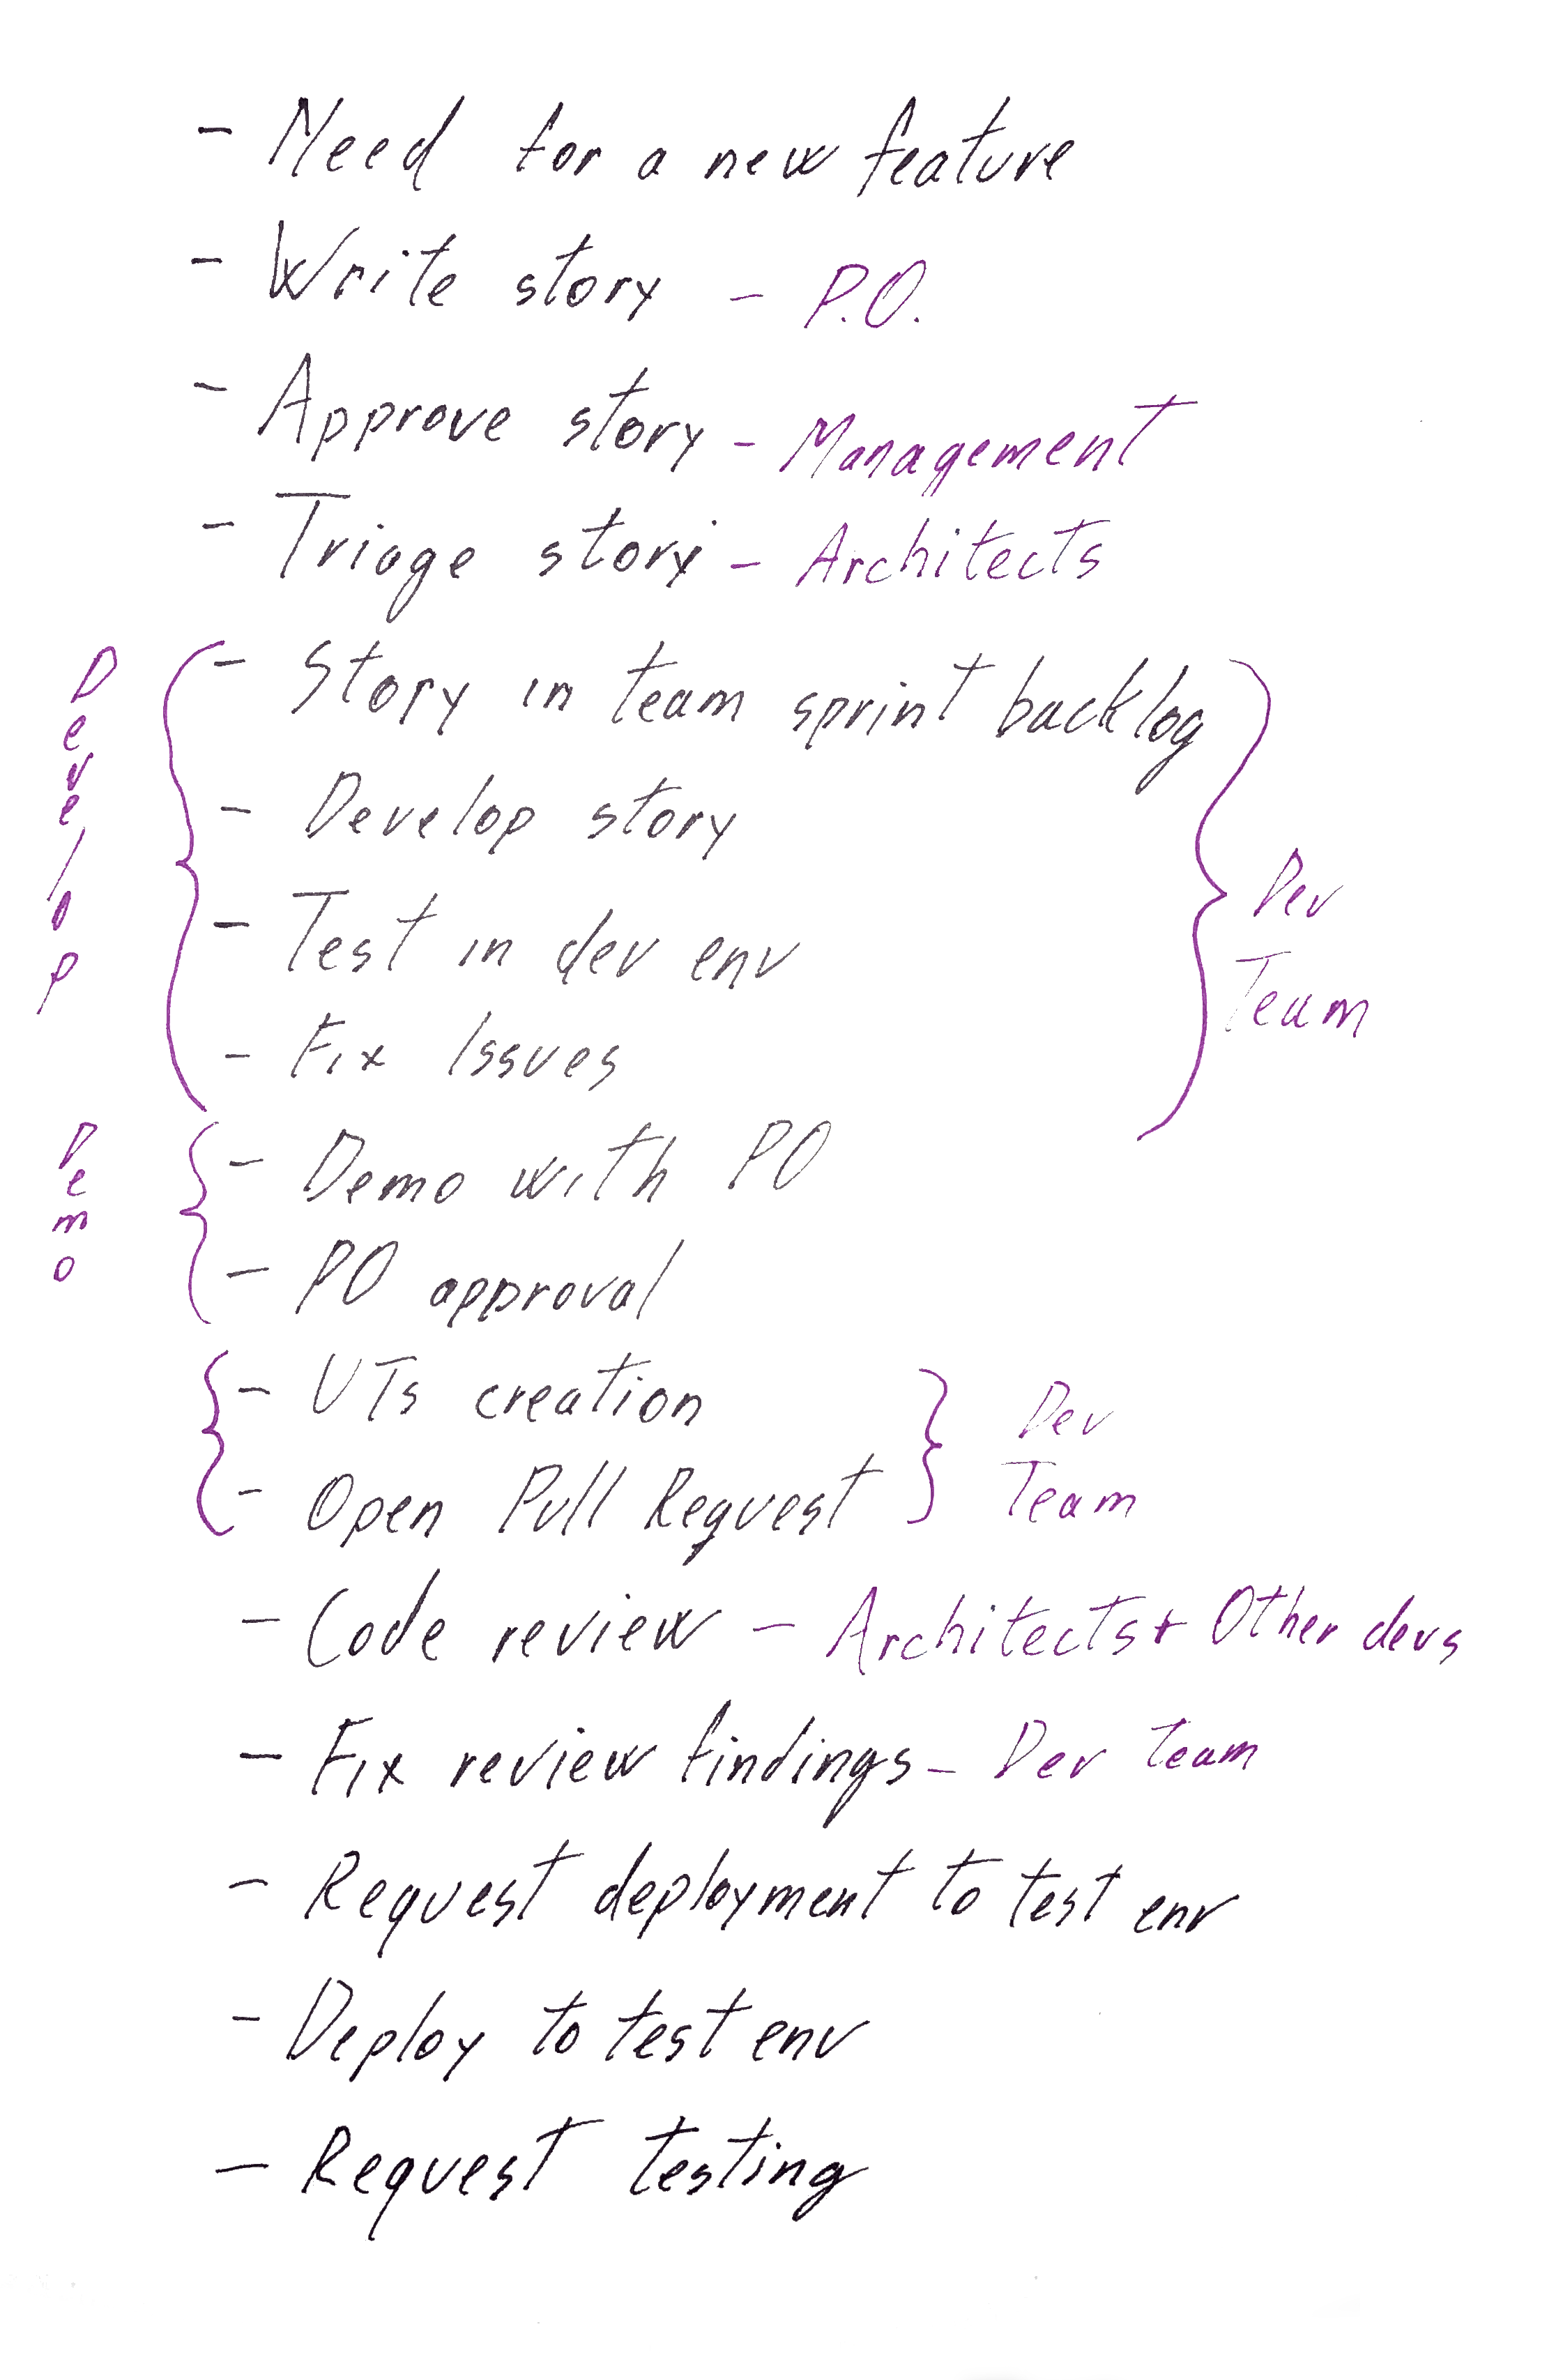 - Need for a new feature
- Write story - P.O.
- Approve story - Management
- Triage story - Architects
Develop
- Story in team sprint backlog
- Develop story
- Test in dev env
- Fix Issues
Dev
Team
Demo
- Demo with PO
- PO approval
- UTs creation
- Open Pull Request
Dev
Team
- Code review - Architects + Other devs
- Fix review findings - Dev team
- Request deployment to test env
- Deploy to test env
- Request testing